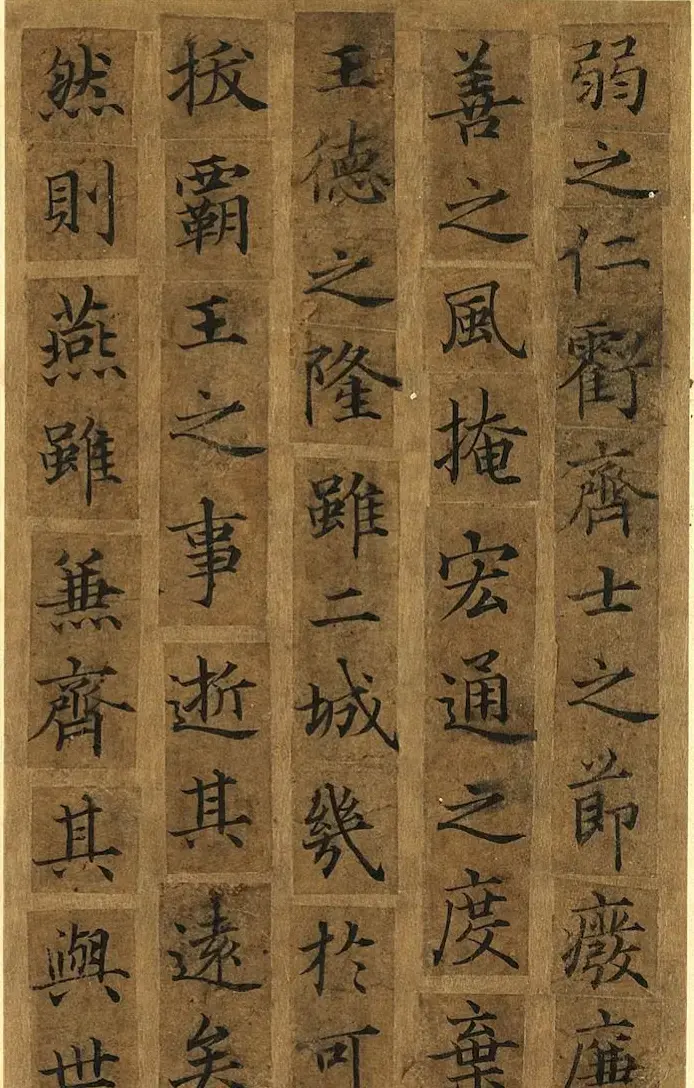 弱之仁虧齊士之節廢廉
善之風掩宏通之度棄
王德之隆雖二城幾於可
拔霸王之事逝其遠矣
然則燕雖兼齊其與世